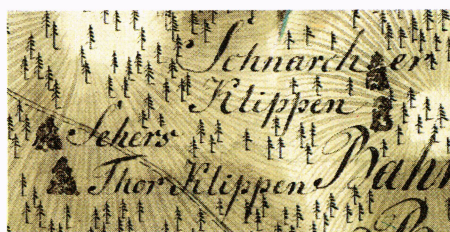 Schnarcher
Klippen
Sehers
Thor Klippen